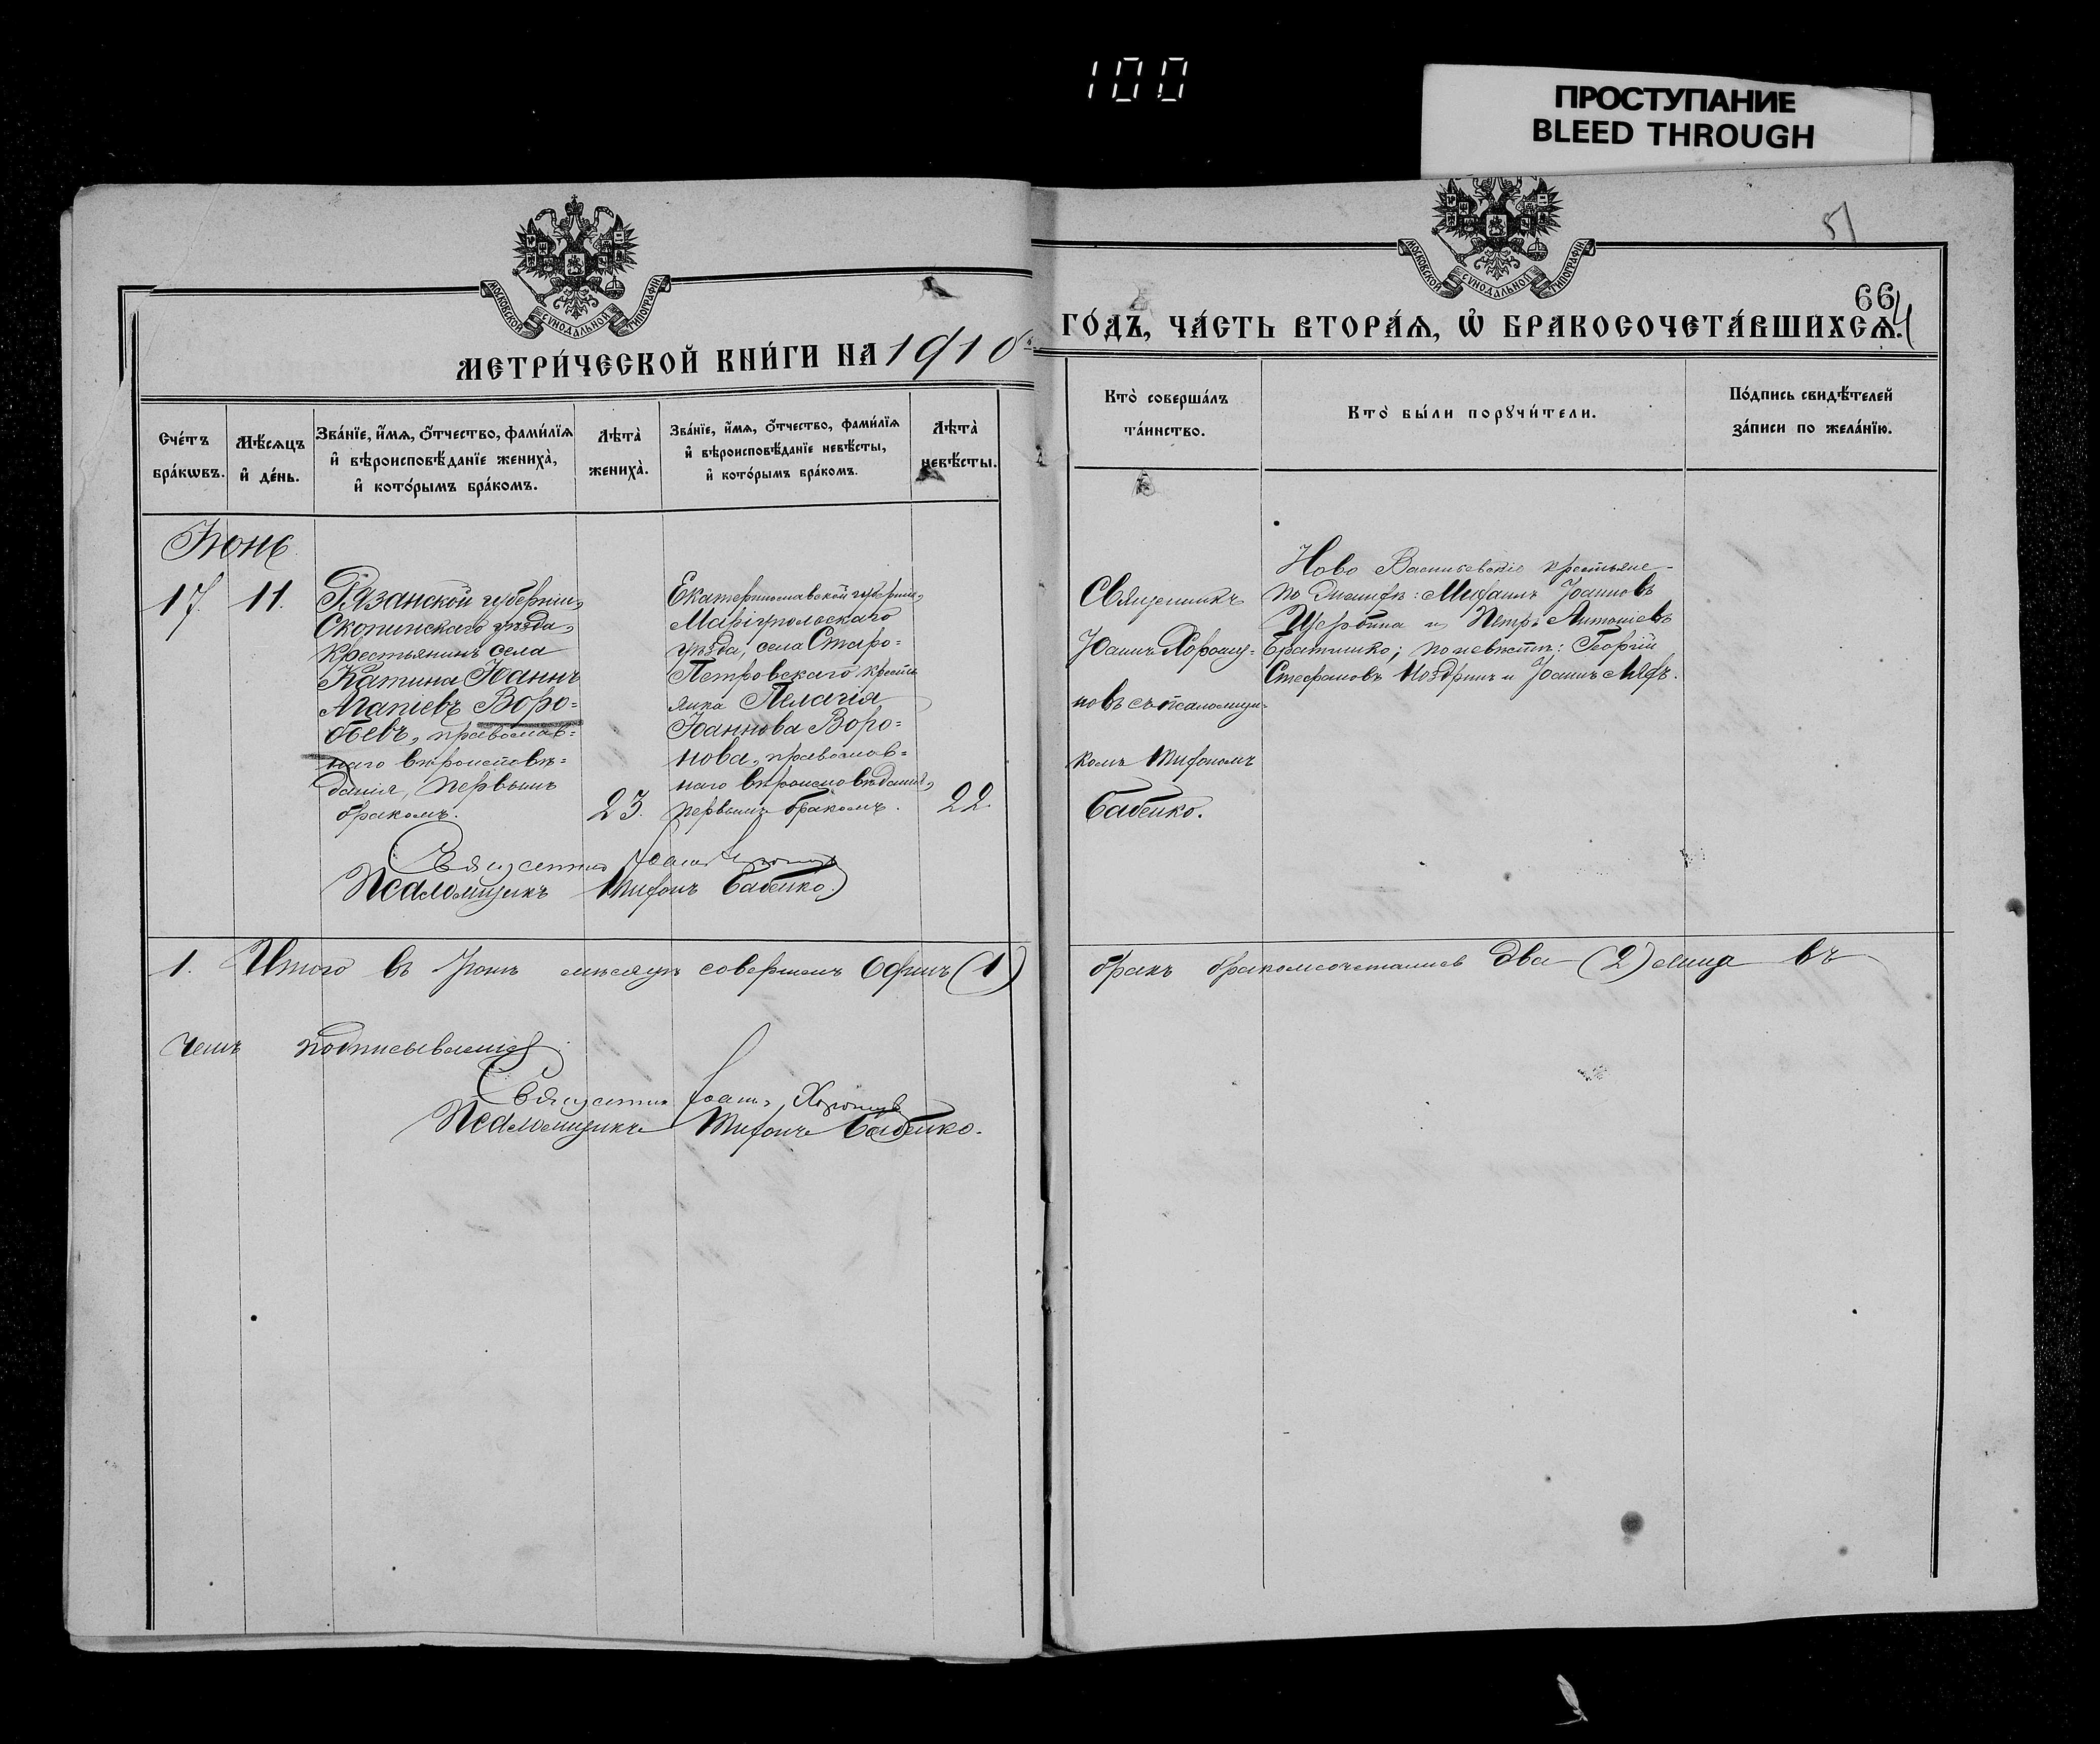 100
ПРОСТУПАНИЕ
BLEED THROUGH
51
МОСКОВСКОЙ СУНОДАЛЬНОЙ ТИПОГРАФІИ
МОСКОВСКОЙ СУНОДАЛЬНОЙ ТИПОГРАФІИ
66
МЕТРИ́ЧЕСКОЙ КНИ́ГИ НА 1910
ГО́ДЪ, ЧА́СТЬ ВТОРА́Ѧ, Ѽ БРАКОСОЧЕТА́ВШИХСѦ.
Сче́тъ
бра́кѡвъ.
Мѣ́сѧцъ
и҆ де́нь.
Зва́нїе, и҆́мѧ, ѻ҆́тчество, фами́лїѧ
и҆ вѣроисповѣ́данїе жениха̀,
и҆ кото́рымъ бра́комъ.
Лѣта̀
жениха̀.
Зва́нїе, и҆́мѧ, ѻ҆́тчество, фами́лїѧ
и҆ вѣроисповѣ́данїе невѣ́сты,
и҆ кото́рымъ бра́комъ.
Лѣта̀
невѣ́сты.
Кто̀ соверша́лъ
та́инство.
Кто̀ бы́ли порꙋчи́тели.
По́дпись свидѣ́телей
за́писи по жела́нїю.
Іюнь
17. 11.
Рязанской губерніи,
Скопинскаго уѣзда,
крестьянинъ села
Катина Іоаннъ
Агапіевъ Воро=
бьевъ, православ=
наго вѣроисповѣ=
данія, первымъ
бракомъ.
23.
Екатеринославской губерніи,
Маріупольскаго
уѣзда, села Старо=
Петровскаго кресть
янка Пелагія
Іоаннова Воро=
нова, православ=
наго вѣроисповѣданія,
первымъ бракомъ.
22.
Священникъ
Іоаннъ Хорошу=
новъ съ псаломщи=
комъ Тифономъ
Бабенко.
Ново Васильевскіе крестьяне
по женихѣ: Михаилъ Іоанновъ
Щербина и Петръ Антоніевъ
Братишко; по невѣстѣ: Георгій
Стефановъ Ноздринъ и Іоаннъ Ляфъ.
Священникъ Іоаннъ
Псаломщикъ Тифонъ Бабенко.
1. Итого въ Іюнѣ мѣсяцѣ совершенъ Одинъ (1)
бракъ бракомсочетались два (2) лица въ
чемъ подписываемся
Священникъ Іоаннъ Хорошуновъ
Псаломщикъ Тифонъ Бабенко.